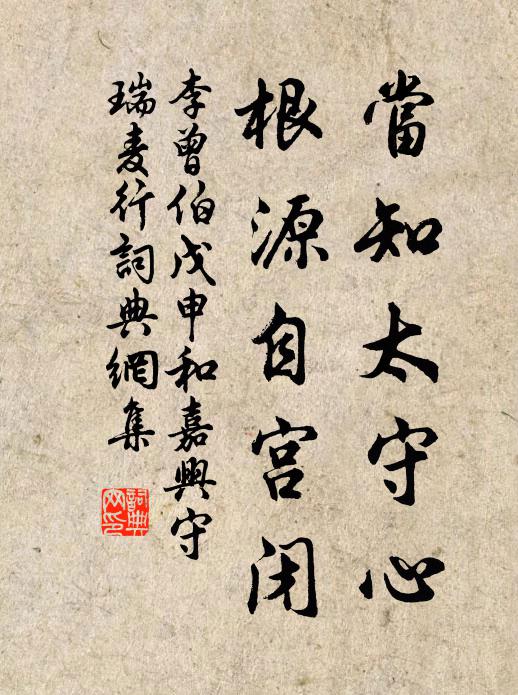 當知太守心
根源自宫閉
李曾伯戊申和嘉興守
瑞麦行詞典網集
詞典网印